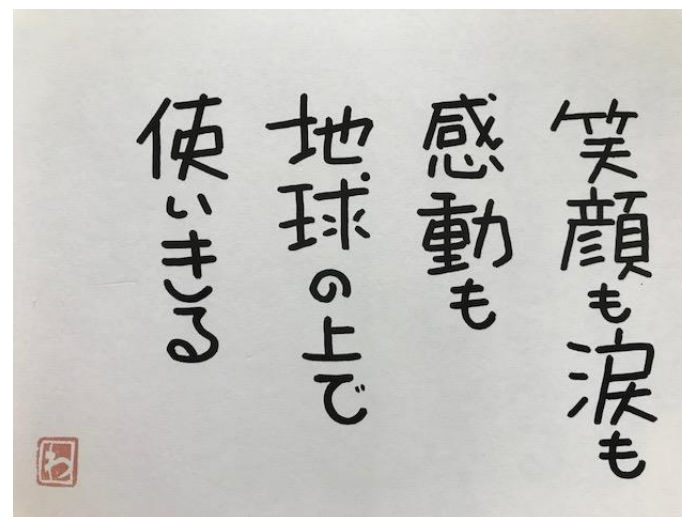 笑顔も涙も
感動も
地球の上で
使いきる
わ